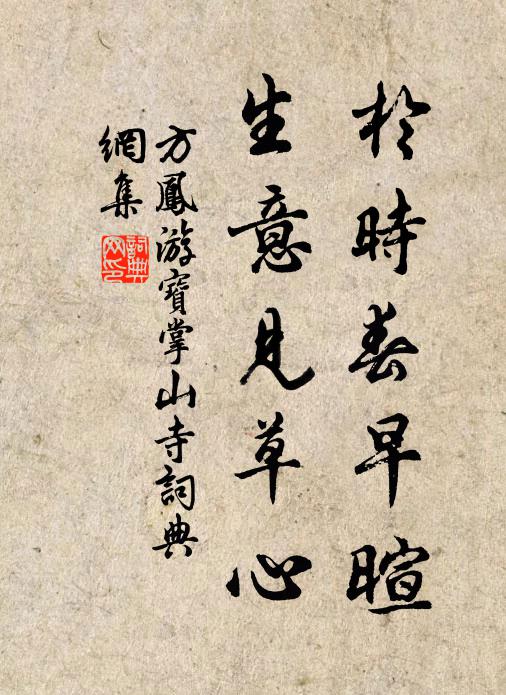 於時春早暄
生意見草心
方鳳游寶掌山寺詞典
網集
詞典
网印